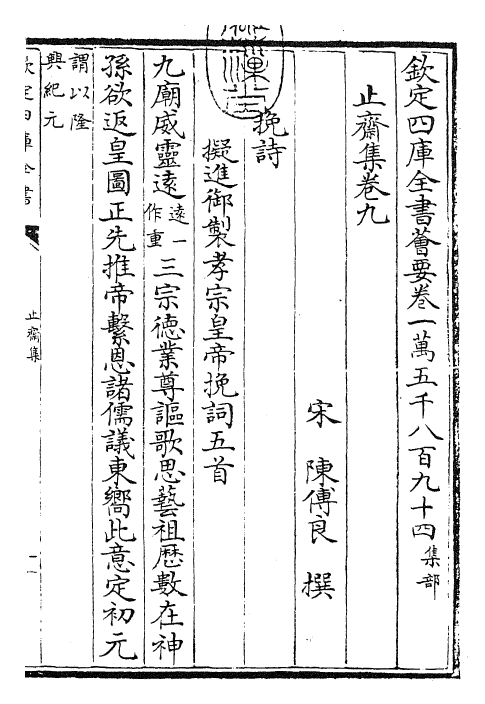 欽定四庫全書薈要卷一萬五千八百九十四集部
止齋集卷九
宋 陳傅良 撰
挽詩
擬進御製孝宗皇帝挽詞五首
九廟威靈遠遠一作重三宗德業尊謳歌思藝祖歷數在神
孫欲返皇圖正先推帝繫恩諸儒議東嚮此意定初元
謂以隆興紀元
欽定四庫全書
止齋集
一